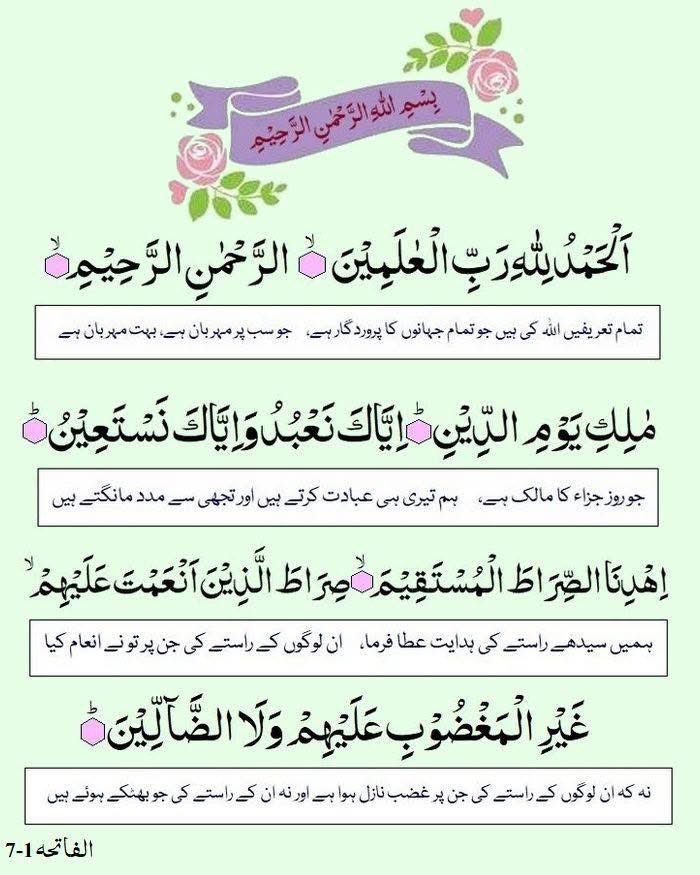 بِسْمِ اللهِ الرَّحْمٰنِ الرَّحِيْمِ
اَلْحَمْدُ لِلّٰهِ رَبِّ الْعٰلَمِيْنَ ۙ الرَّحْمٰنِ الرَّحِيْمِ ۙ
تمام تعریفیں اللہ کی ہیں جو تمام جہانوں کا پروردگار ہے، جو سب پر مہربان ہے، بہت مہربان ہے
مٰلِكِ يَوْمِ الدِّيْنِ ؕ اِيَّاكَ نَعْبُدُ وَاِيَّاكَ نَسْتَعِيْنُ ؕ
جو روز جزاء کا مالک ہے، ہم تیری ہی عبادت کرتے ہیں اور تجھی سے مدد مانگتے ہیں
اِهْدِنَا الصِّرَاطَ الْمُسْتَقِيْمَ ۙ صِرَاطَ الَّذِيْنَ اَنْعَمْتَ عَلَيْهِمْ ۙ
ہمیں سیدھے راستے کی ہدایت عطا فرما، ان لوگوں کے راستے کی جن پر تو نے انعام کیا
غَيْرِ الْمَغْضُوْبِ عَلَيْهِمْ وَلَا الضَّآلِّيْنَ ؕ
نہ کہ ان لوگوں کے راستے کی جن پر غضب نازل ہوا ہے اور نہ ان کے راستے کی جو بھٹکے ہوئے ہیں
الفاتحه 1-7